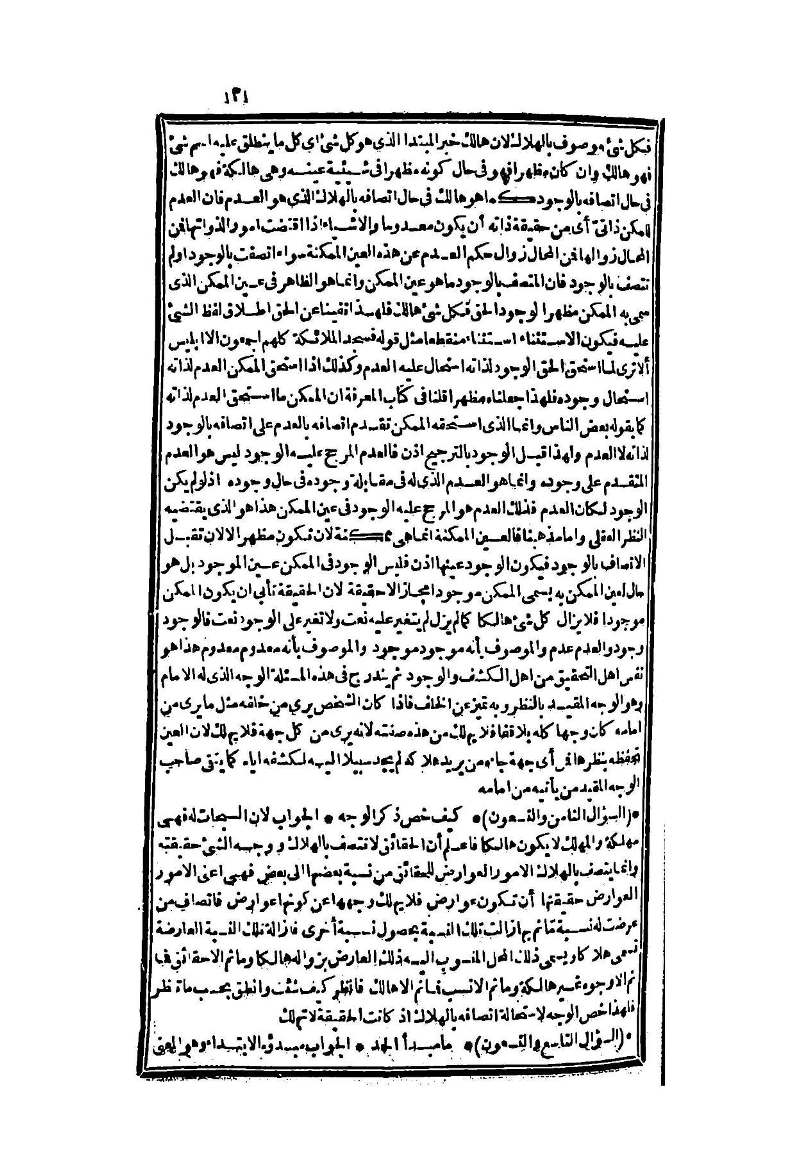 ١٣١
فكل شئ موصوف بالهلاك لان هالك خبر المبتدا الذى هو كل شئ أى كل ما ينطلق عليه اسم شئ
فهو هالك وان كان مظهرا فهو فى حال كونه مظهرا فى شيئية عينه وهى هالكة فهو هالك
فى حال اتصافه بالوجود كما هو هالك فى حال اتصافه بالهلاك الذى هو العدم فان العدم
للممكن ذاتى أى من حقيقة ذاته أن يكون معدوما والاشياء اذا اقتضت امورا لذواتها فمن
المحال زوالها فمن المحال زوال حكم العدم عن هذه العين الممكنة سواء اتصفت بالوجود اولم
تتصف بالوجود فان المتصف بالوجود ما هو عين الممكن وانما هو الظاهر فى عين الممكن الذى
سمى به الممكن مظهرا لوجود الحق فكل شئ هالك فلهذا نفينا عن الحق اطلاق لفظ الشئ
عليه فيكون الاستثناء استثناء منقطعا مثل قوله فسجد الملائكة كلهم اجمعون الا ابليس
ألا ترى لما استحق الحق الوجود لذاته استحال عليه العدم وكذلك اذا استحق الممكن العدم لذاته
استحال وجوده فلهذا جعلناه مظهرا قلنا فى كتاب المعرفة ان الممكن ما استحق العدم لذاته
كما يقوله بعض الناس وانما الذى استحقه الممكن تقدم اتصافه بالعدم على اتصافه بالوجود
لذاته لا العدم ولهذا قبل الوجود بالترجيح اذن فالعدم المرجح عليه الوجود ليس هو العدم
المتقدم على وجوده وانما هو العدم الذى له فى مقابلة وجوده فى حال وجوده اذ لو لم يكن
الوجود لكان العدم فذلك العدم هو المرجح عليه الوجود فى عين الممكن هذا هو الذى يقتضيه
النظر العقلى واما مذهبنا فالعين الممكنة انما هى ممكنة لان تكون مظهرا لا لان تقبل
الاتصاف بالوجود فيكون الوجود عينها اذن فليس الوجود فى الممكن عين الموجود بل هو
حال لعين الممكن به يسمى الممكن موجودا مجازا لا حقيقة لان الحقيقة تأبى ان يكون الممكن
موجودا فلا يزال كل شئ هالكا كما لم يزل لم يتغير عليه نعت ولا تغير على الوجود نعت فالوجود
وجود والعدم عدم والموصوف بأنه موجود موجود والموصوف بأنه معدوم معدوم هذا هو
نفس اهل التحقيق من اهل الكشف والوجود ثم يندرج فى هذه المسئلة الوجه الذى له الامام
وهو الوجه المقيد بالنظر وبه تميز عن الخلف فاذا كان الشخص يرى من خلفه مثل ما يرى من
امامه كان وجها كله بلا قفا فلا يهلك من هذه صفته لانه يرى من كل جهة فلا يهلك لان العين
تحفظه بنظرها فمن أى جهة جاءه من يريد هلاكه لم يجد سبيلا اليه لكشفه اياه كما يتقى صاحب
الوجه المقيد من يأتيه من امامه
*(السؤال الثامن والتسعون)* كيف خص ذكر الوجه * الجواب لان السبحات له فهى
مهلكة والمهلك لا يكون هالكا فاعلم أن الحقائق لا تتصف بالهلاك ووجه الشئ حقيقته
وانما يتصف بالهلاك الامور العوارض للحقائق من نسبة بعضها الى بعض فهى اعنى الامور
العوارض حقيقتها أن تكون عوارض فلا يهلك وجهها عن كونها عوارض فاتصاف من
عرضت له نسبة تما ثم بازالة تلك النسبة بحصول نسبة أخرى فازالة تلك النسبة العارضة
تسمى هلاكا ويسمى ذلك المحل المنسوب اليه ذلك العارض بزواله هالكا وما ثم الا حقائق فما
ثم الا وجوه غير هالكة وما ثم الا نسب فما ثم الا هالك فانظر كيف شئت وانطق بحسب ما تنظر
فلهذا خص الوجه لاستحالة اتصافه بالهلاك اذ كانت الحقيقة لا تهلك
*(السؤال التاسع والتسعون)* ما مبدأ الحمد * الجواب مبدؤه الابتداء وهو المعنى